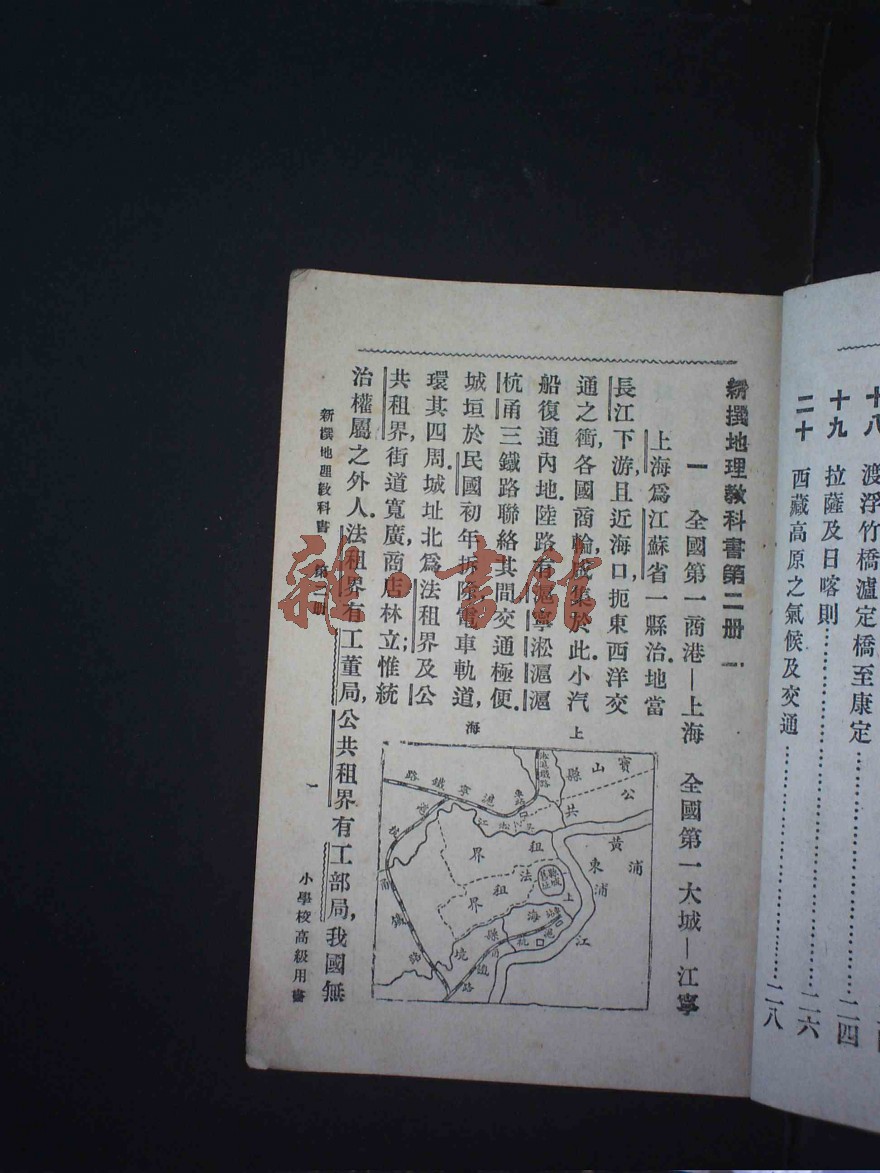 十八 渡浮竹橋瀘定橋至康定
十九 拉薩及日喀則……二四
二十 西藏高原之氣候及交通……二六
二八
新撰地理教科書第二册
一 全國第一商港—上海 全國第一大城—江寧
上海爲江蘇省一縣治.地當
長江下游,且近海口,扼東西洋交
通之衝,各國商輪咸集於此.小汽
船復通內地.陸路有滬寧淞滬滬
杭甬三鐵路聯絡其間交通極便.
城垣於民國初年拆除,電車軌道,
環其四周.城址北爲法租界及公
共租界,街道寬廣,商店林立;惟統
治權屬之外人.法租界有工董局,公共租界有工部局,我國無
上海
寶山縣
公共租界
法租界
黃浦江
浦東
上海縣境
縣城舊址
滬寧鐵路
淞滬鐵路
新撰地理教科書 第二册 一 小學校高級用書
雜·書館